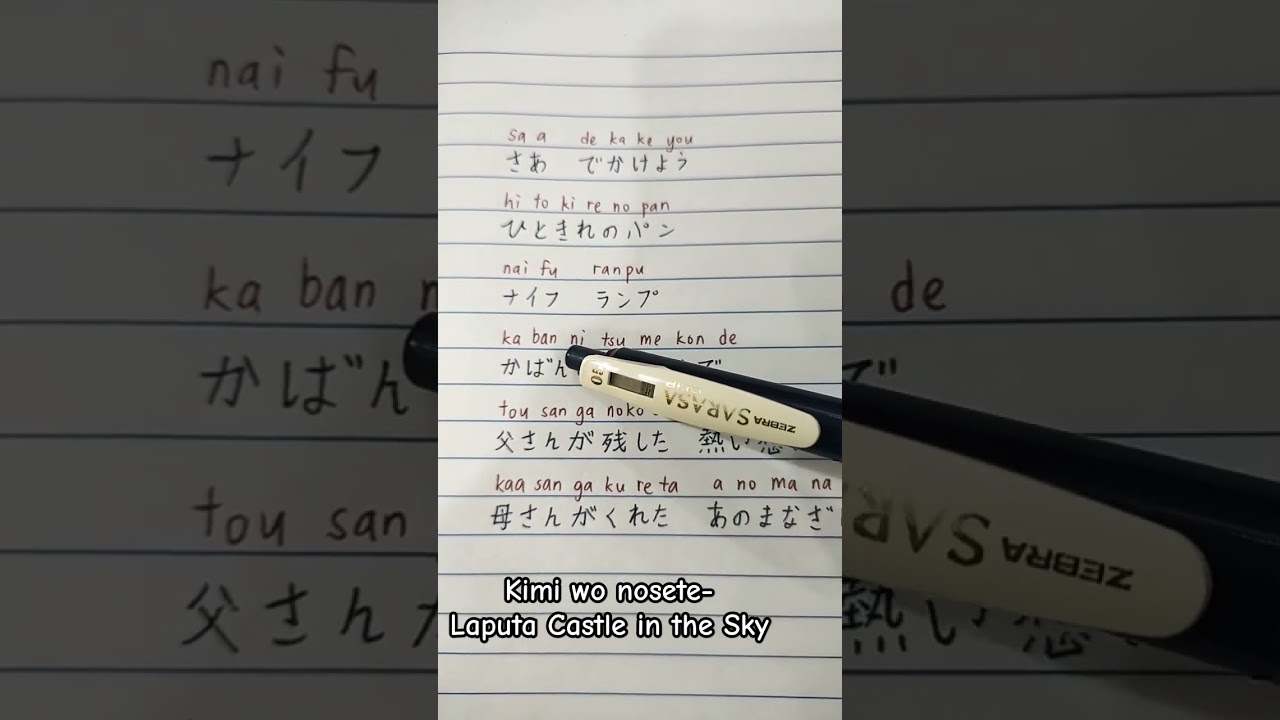 sa a de ka ke you
さあ でかけよう
hi to ki re no pan
ひときれのパン
nai fu ranpu
ナイフ ランプ
ka ban ni tsu me kon de
かばん で
tou san ga noko
父さんが残した 熱い
kaa san ga ku re ta a no ma na
母さんがくれた あのまなざ
ZEBRA SARASA
Kimi wo nosete-
Laputa Castle in the Sky